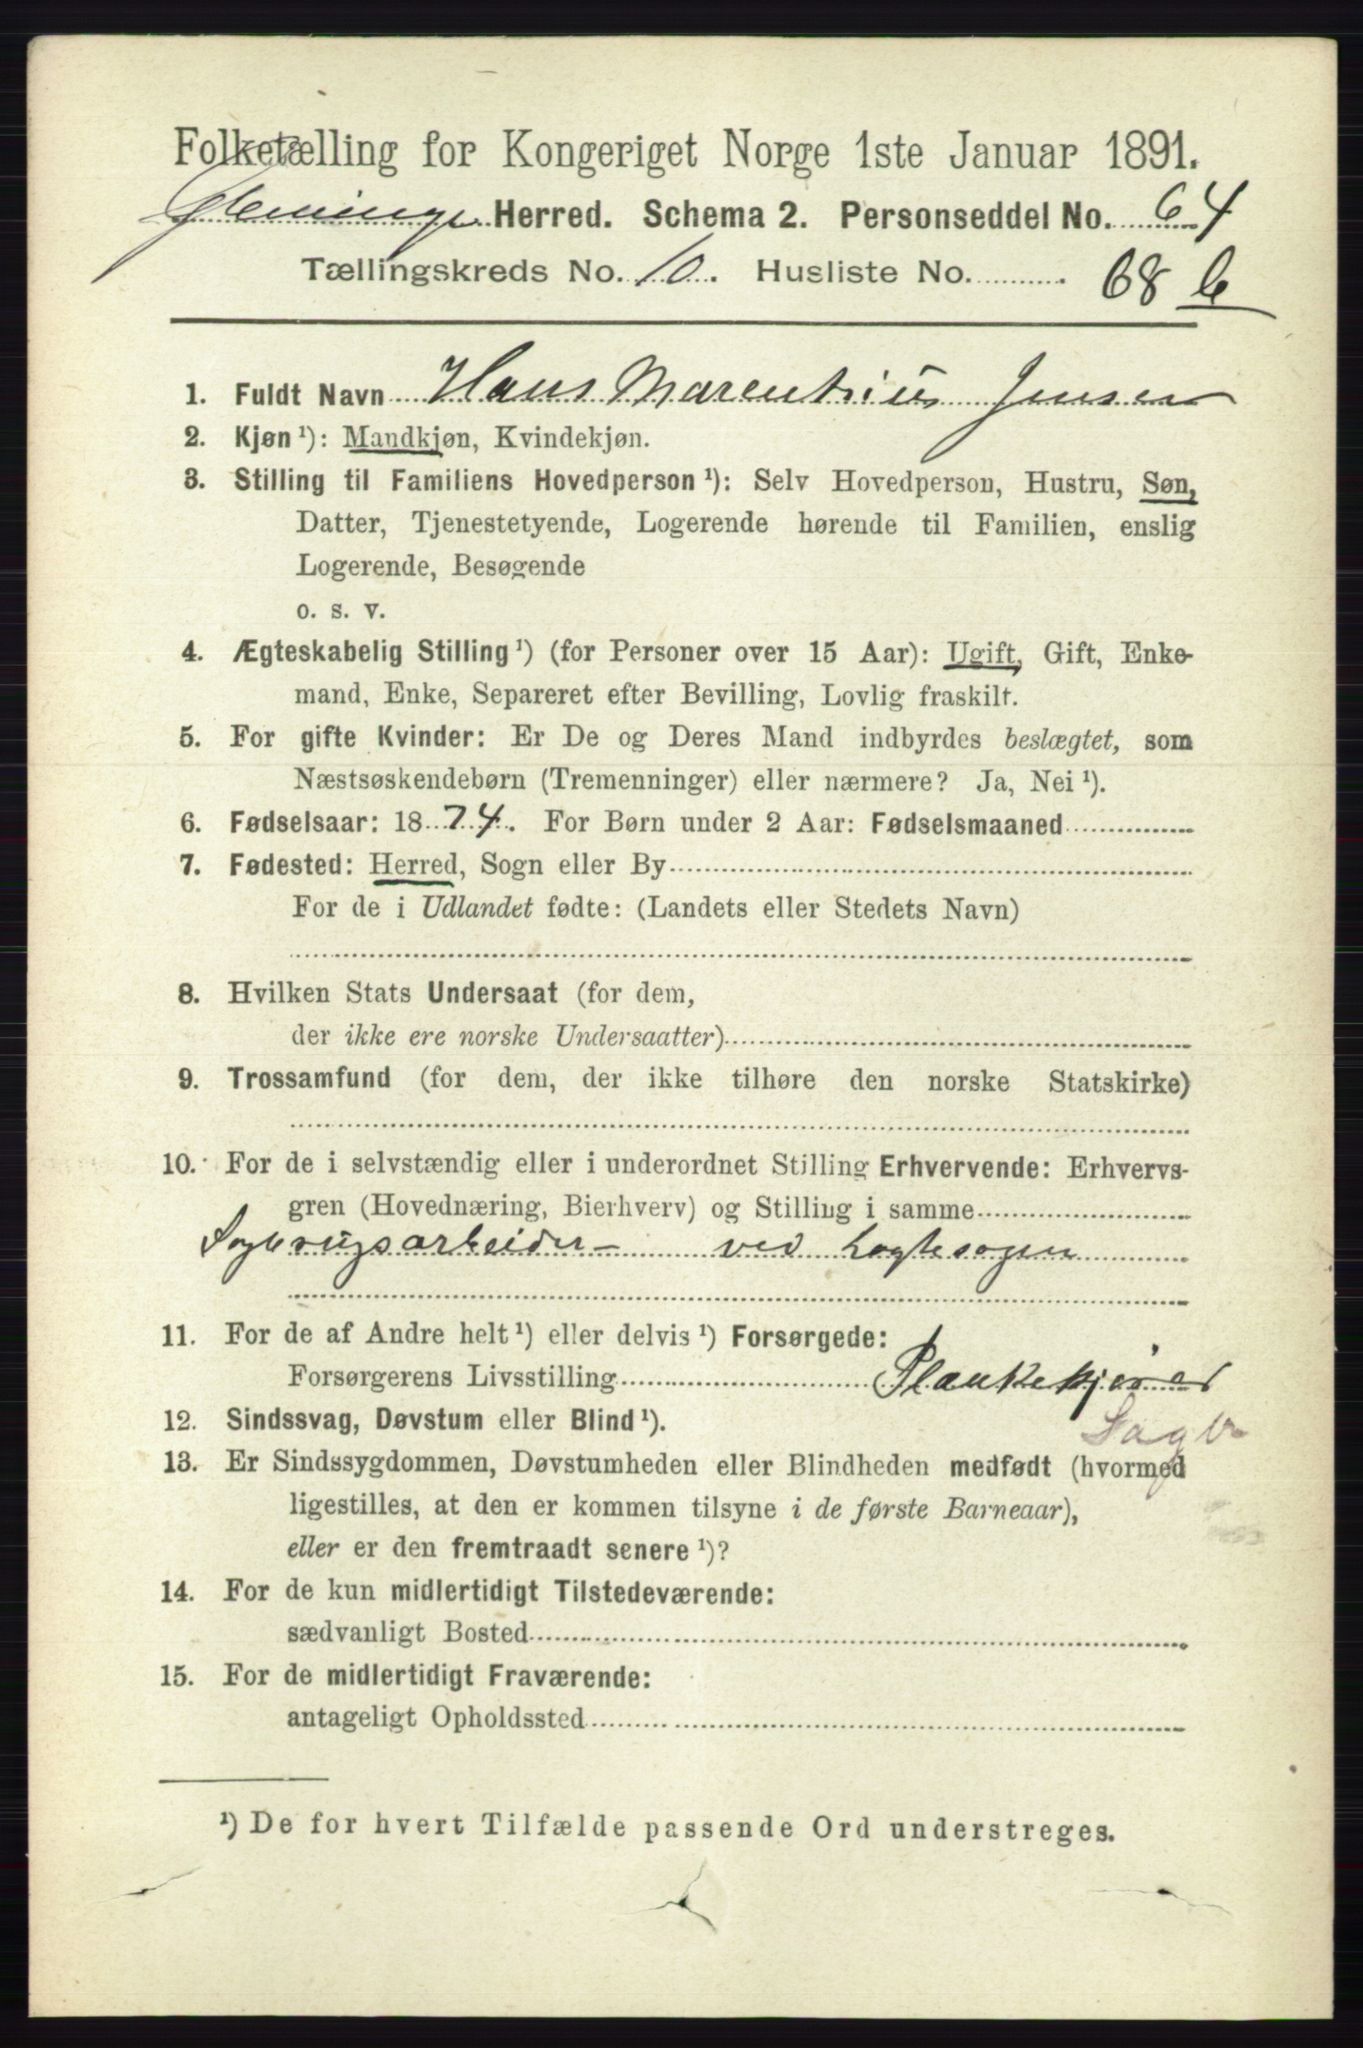 Folketælling for Kongeriget Norge 1ste Januar 1891.
Glemminge Herred. Schema 2. Personseddel No. 64
Tællingskreds No. 10. Husliste No. 68 b
1. Fuldt Navn Hans Marentsius Jensen
2. Kjøn¹): Mandkjøn, Kvindekjøn.
3. Stilling til Familiens Hovedperson¹): Selv Hovedperson, Hustru, Søn,
Datter, Tjenestetyende, Logerende hørende til Familien, enslig
Logerende, Besøgende
o. s. v.
4. Ægteskabelig Stilling¹) (for Personer over 15 Aar): Ugift, Gift, Enke-
mand, Enke, Separeret efter Bevilling, Lovlig fraskilt.
5. For gifte Kvinder: Er De og Deres Mand indbyrdes beslægtet, som
Næstsøskendebørn (Tremenninger) eller nærmere? Ja, Nei¹).
6. Fødselsaar: 1874. For Børn under 2 Aar: Fødselsmaaned
7. Fødested: Herred, Sogn eller By
For de i Udlandet fødte: (Landets eller Stedets Navn)
8. Hvilken Stats Undersaat (for dem,
der ikke ere norske Undersaatter)
9. Trossamfund (for dem, der ikke tilhøre den norske Statskirke)
10. For de i selvstændig eller i underordnet Stilling Erhvervende: Erhvervs-
gren (Hovednæring, Bierhverv) og Stilling i samme
Sagbrugsarbeider - ved Lagtesagen
11. For de af Andre helt¹) eller delvis¹) Forsørgede:
Forsørgerens Livsstilling Plankekjører
Sagbr
12. Sindssvag, Døvstum eller Blind¹).
13. Er Sindssygdommen, Døvstumheden eller Blindheden medfødt (hvormed
ligestilles, at den er kommen tilsyne i de første Barneaar),
eller er den fremtraadt senere¹)?
14. For de kun midlertidigt Tilstedeværende:
sædvanligt Bosted
15. For de midlertidigt Fraværende:
antageligt Opholdssted
¹) De for hvert Tilfælde passende Ord understreges.